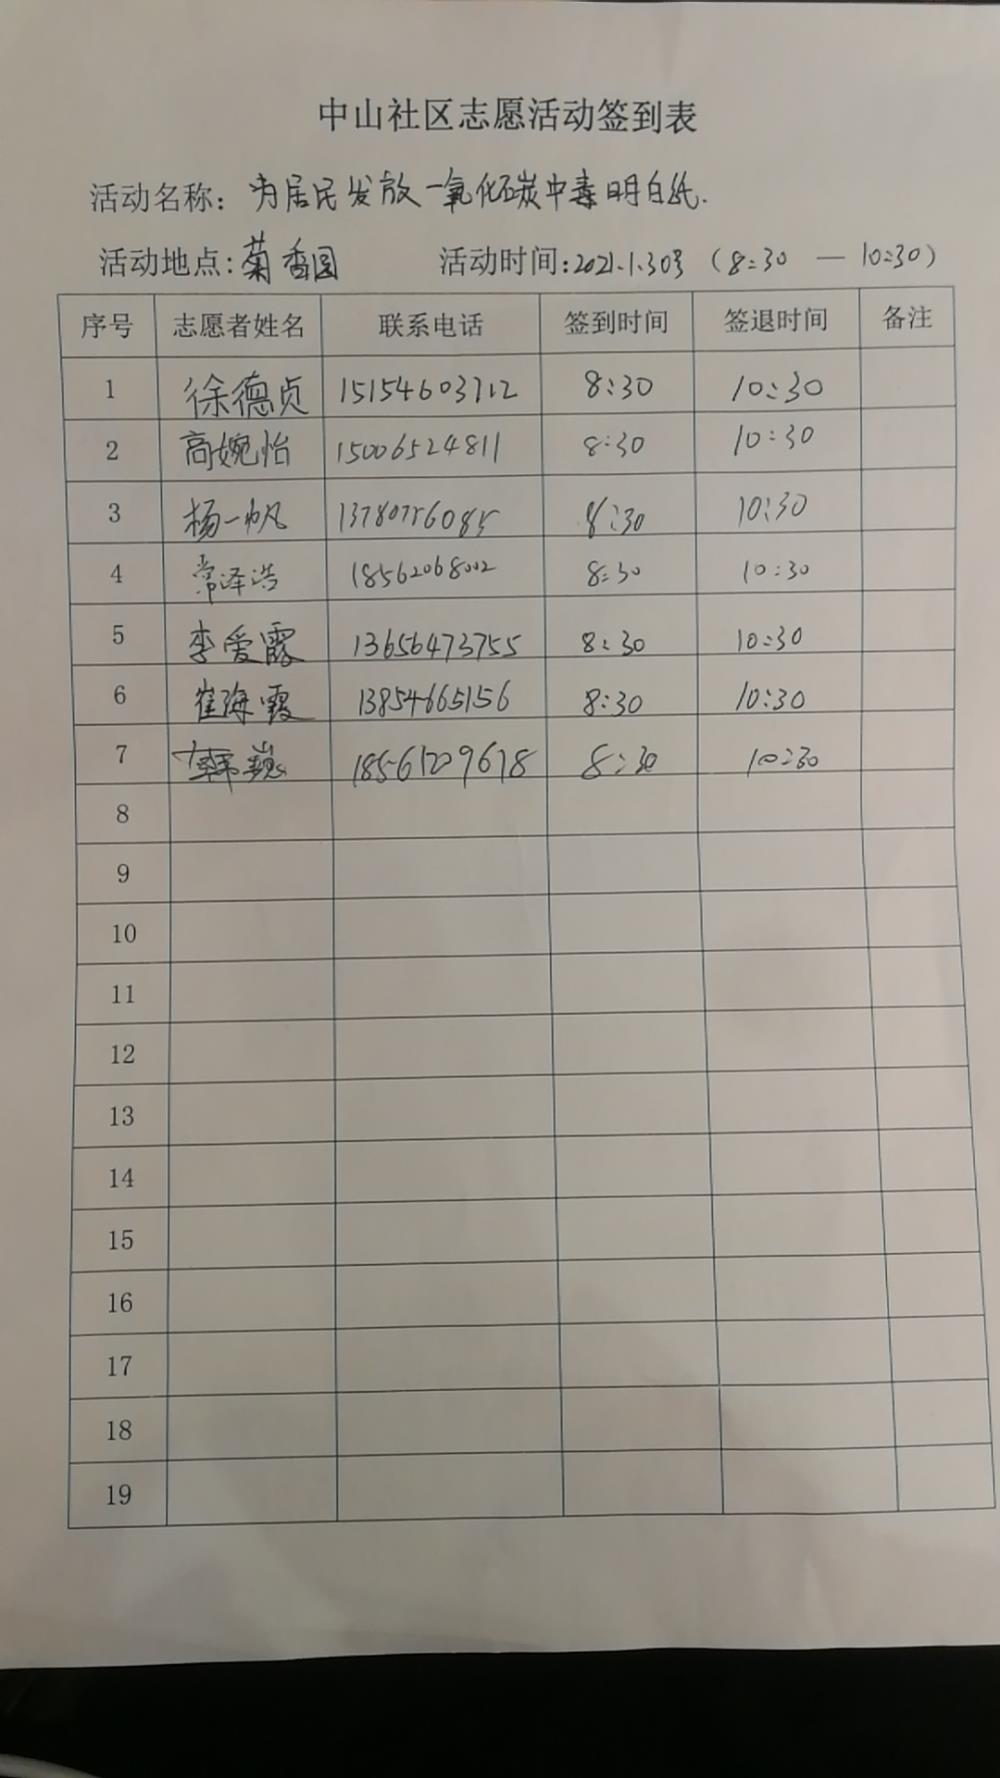 中山社区志愿活动签到表
活动名称: 为居民发放一氧化碳中毒明白纸.
活动地点: 菊香园 活动时间: 2021.1.30号 (8:30 — 10:30)
序号 志愿者姓名 联系电话 签到时间 签退时间 备注
1 徐德贞 15154603712 8:30 10:30
2 高婉怡 15006524811 8:30 10:30
3 杨一帆 13780756085 8:30 10:30
4 常泽浩 18562068002 8:30 10:30
5 李爱霞 13656473755 8:30 10:30
6 崔海霞 13854665156 8:30 10:30
7 韩巍 18561209678 8:30 10:30
8
9
10
11
12
13
14
15
16
17
18
19